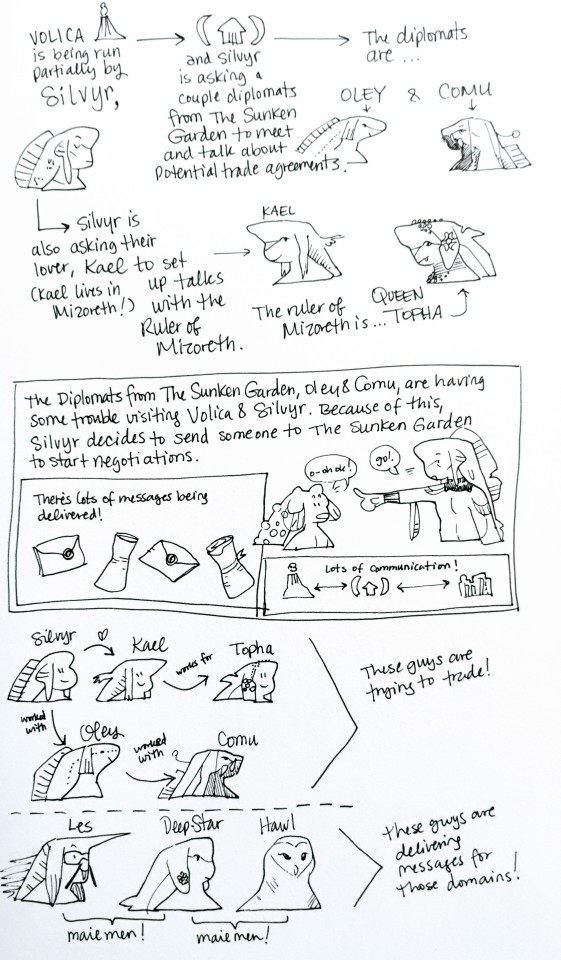 VOLICA
is being run
partially by
Silvyr,
and Silvyr
is asking a
couple diplomats
from The Sunken
Garden to meet
and talk about
potential trade agreements.
The diplomats
are ...
OLEY & COMU
Silvyr is
also asking their
lover, Kael to set
(Kael lives in
Mizoreth!)
up talks
with the
Ruler of
Mizoreth.
KAEL
The ruler of
Mizoreth is ...
QUEEN
TOPHA
The Diplomats from The Sunken Garden, Oley & Comu, are having
some trouble visiting Volica & Silvyr. Because of this,
Silvyr decides to send someone to The Sunken Garden
to start negotiations.
There's lots of messages being
delivered!
o-oh ok!
go!
Lots of communication!
Silvyr
Kael
works for
Topha
worked
with
Oley
worked
with
?
Comu
These guys are
trying to trade!
Les
Deep-Star
Hawl
maie men!
maie men!
These guys are
delivering
messages for
those domains!